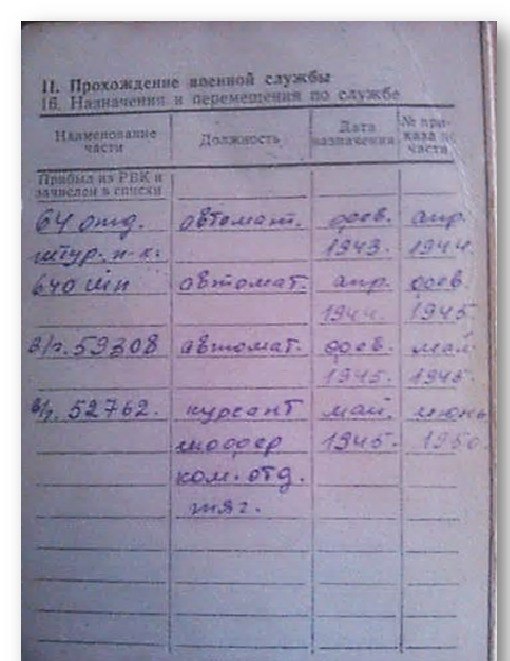 II. Прохождение военной службы
16. Назначения и перемещения по службе
Наименование части Должность Дата назначения № приказа по части
Прибыл из РВК и зачислен в списки
64 отд. автомат. фев. апр.
штур. п-к. 1943. 1944.
640 шп автомат. апр. фев.
1944. 1945
в/ч. 59308 автомат. фев. май
1945. 1945.
в/ч. 52762. курсант май. июнь
шофер 1945. 1950
ком. отд.
тяг.